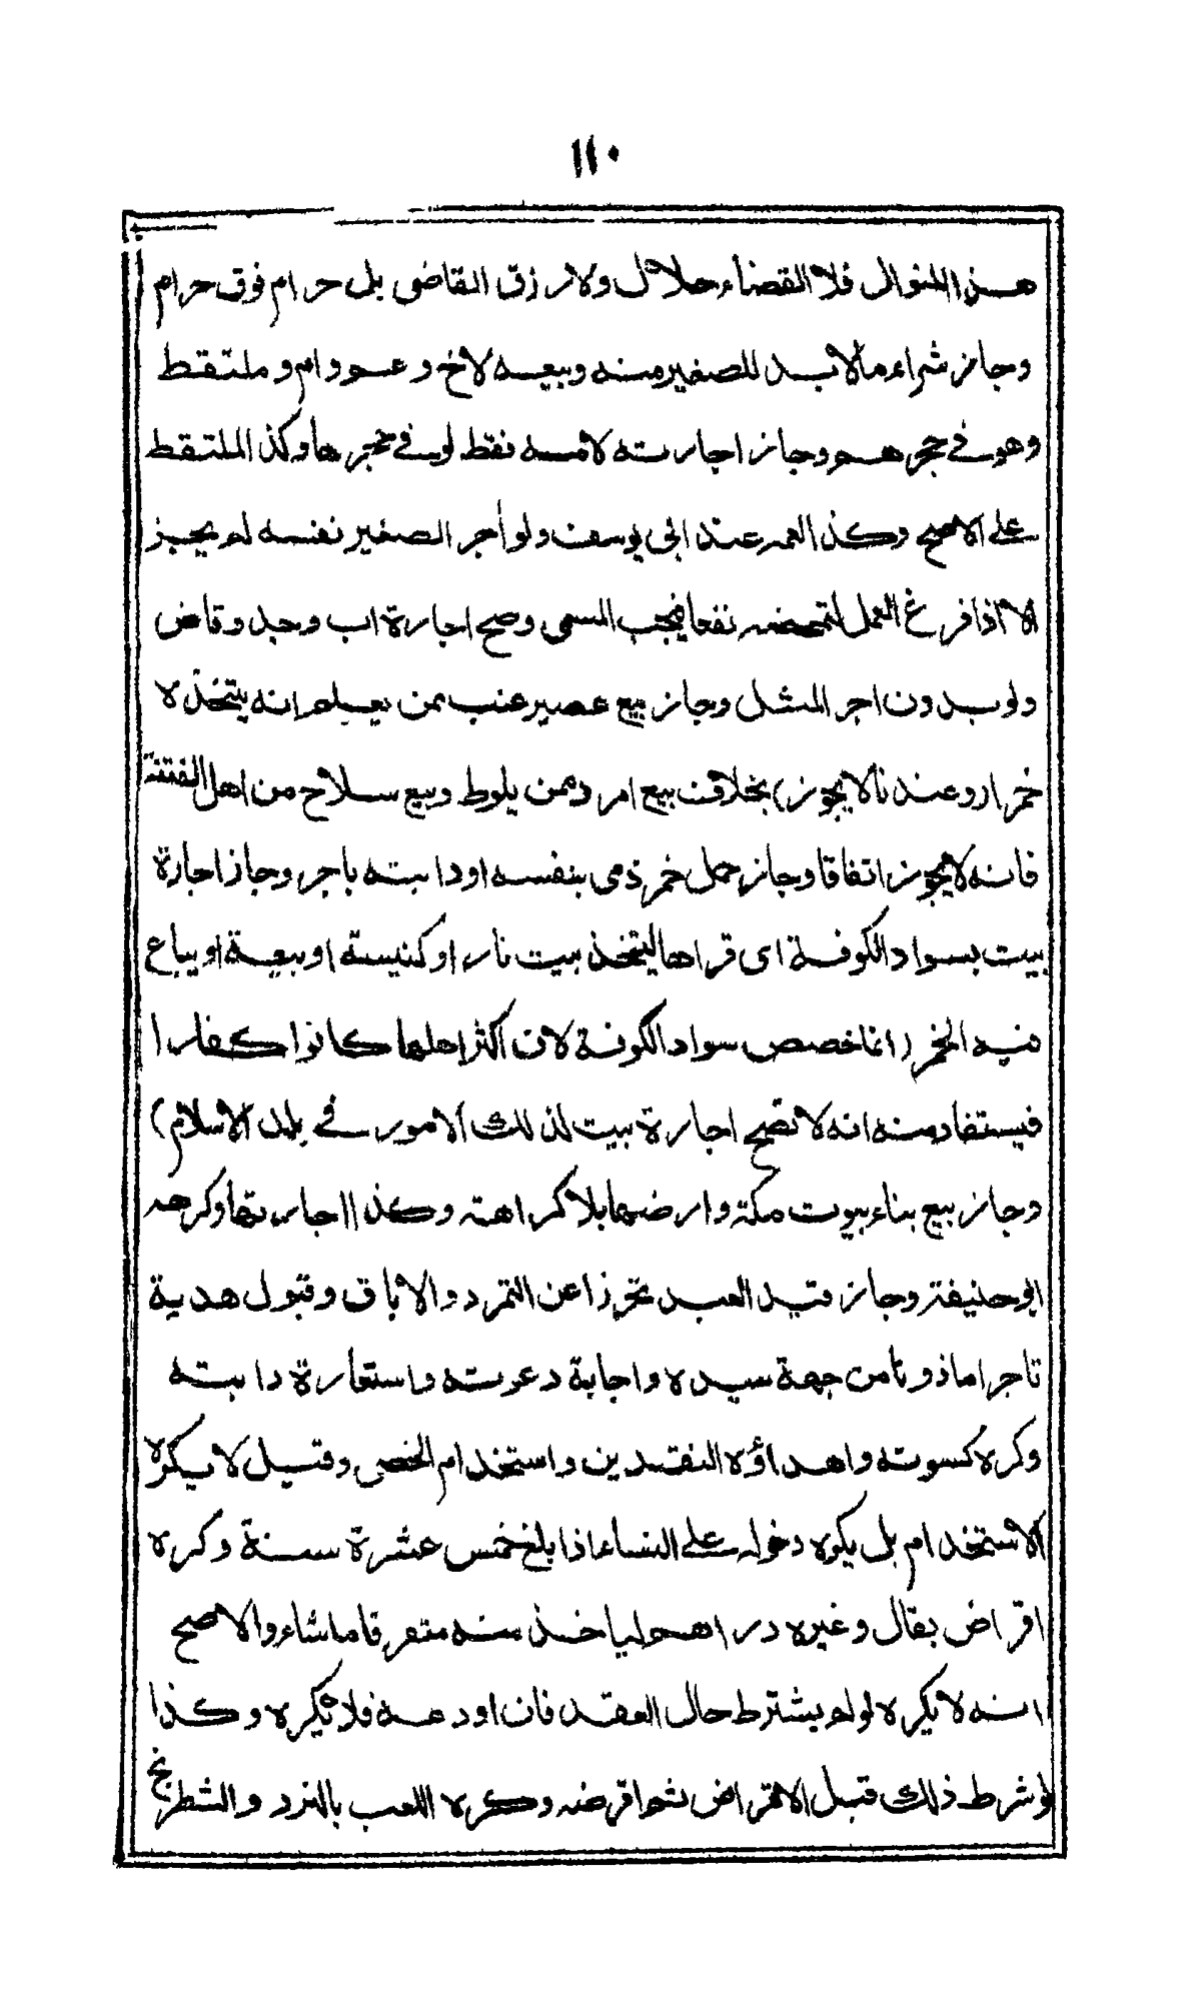 ١١٠
هذا المنوال فلا القضاء حلال ولا رزق القاضى بل حرام فوق حرام
وجاز شراء مالابد للصغير منه وبيعه لاخ وعم وام وملتقط
وهو فى حجرهم وجاز اجارته لامه فقط لو فى حجرها وكذا الملتقط
على الاصح وكذا العمه عند ابى يوسف ولو أجر الصغير نفسه لم يجز
الا اذا فرغ العمل لتمحضه نفعا فيجب المسمى وصح اجارة اب وجد وقاض
ولو بدون اجر المثل وجاز بيع عصير عنب ممن يعلم انه يتخذه
خمرا (وعندنا لا يجوز) بخلاف بيع امرد ممن يلوط وبيع سلاح من اهل الفتنة
فانه لا يجوز اتفاقا وجاز حمل خمر ذمى بنفسه او دابته باجر وجاز اجارة
بيت بسواد الكوفة اى قراها ليتخذ بيت نار او كنيسة او بيعة او يباع
فيه الخمر (انما خصص سواد الكوفة لان اكثر اهلها كانوا كفارا
فيستفاد منه انه لا تصح اجارة بيت لذلك الامور فى بلد الاسلام)
وجاز بيع بناء بيوت مكة وارضها بلا كراهة وكذا اجارتها وكرهه
ابو حنيفة وجاز قيد العبد تحرزا عن التمرد والاباق وقبول هدية
تاجرا ماذونا من جهة سيده واجابة دعوته واستعارة دابته
وكره كسوته واهداؤه النقدين واستخدام الخصى وقيل لا يكره
الاستخدام بل يكره دخوله على النساء اذا بلغ خمس عشرة سنة وكره
اقراض بقال وغيره دراهم لياخذ منه متفرقا ما شاء والاصح
انه لا يكره لو لم يشترط حال العقد فان اودعه فلا يكره وكذا
لو شرط ذلك قبل الاقراض ثم اقرضه وكره اللعب بالنرد والشطرنج